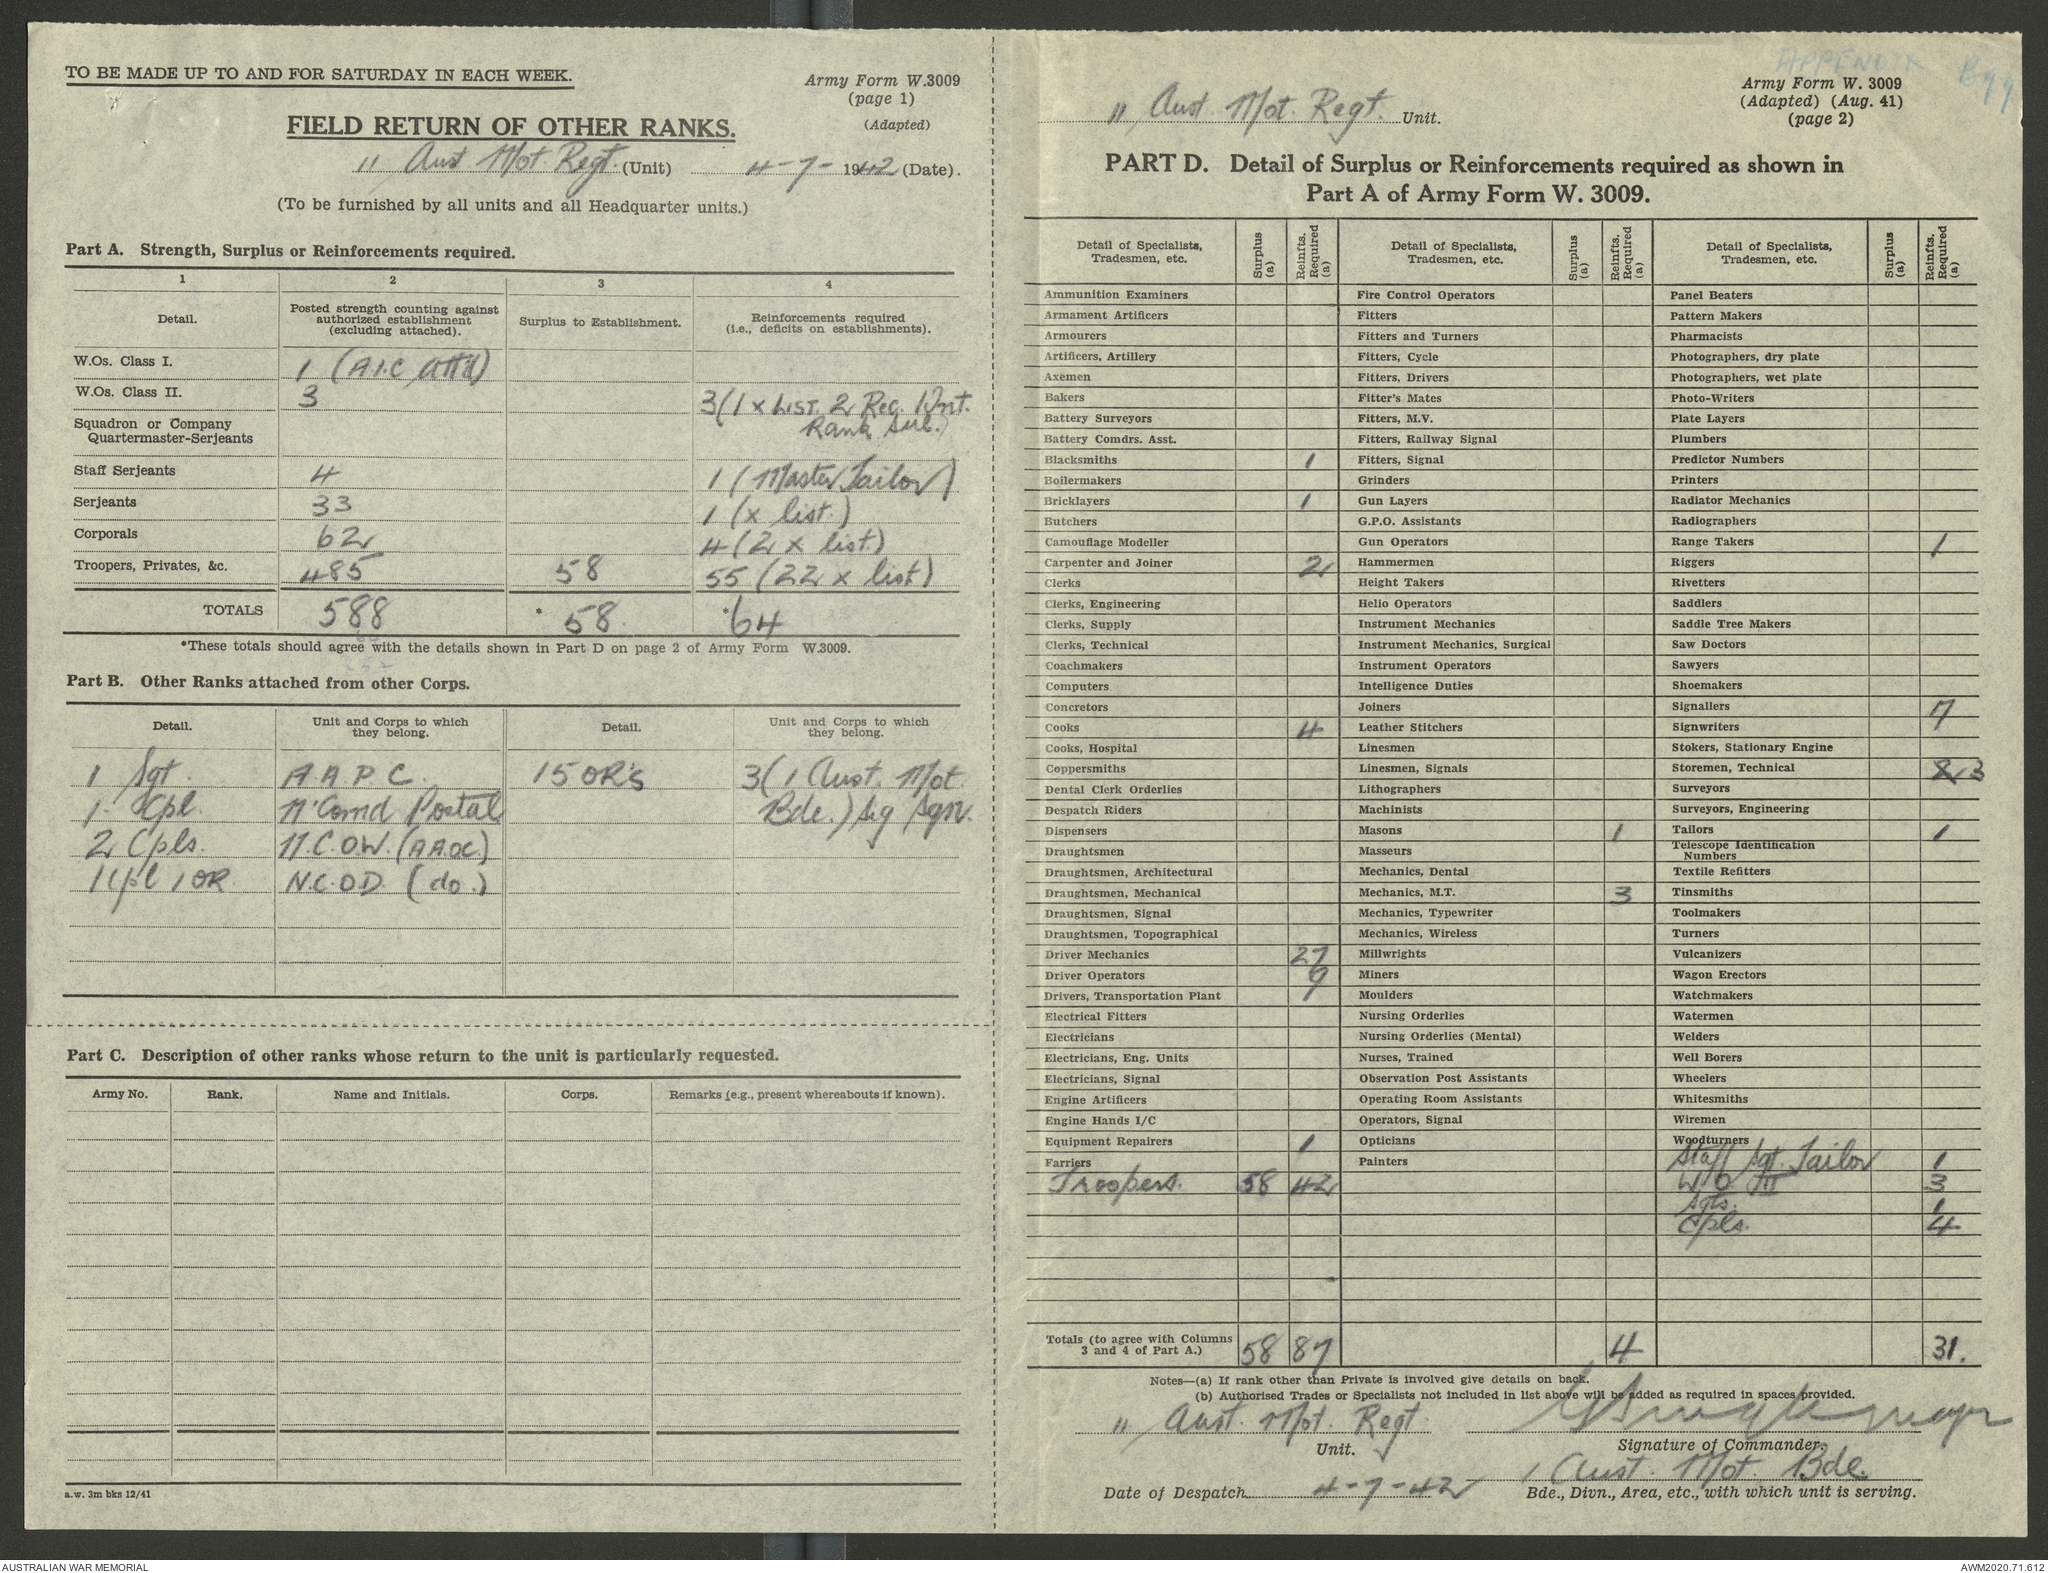 TO BE MADE UP TO AND FOR SATURDAY IN EACH WEEK.
Army Form W.3009
(page 1)
(Adapted)
FIELD RETURN OF OTHER RANKS.
11 Aust Mot Regt. (Unit) 4-7-1942 (Date).
(To be furnished by all units and all Headquarter units.)
Part A. Strength, Surplus or Reinforcements required.
1 2 3 4
Detail. Posted strength counting against authorized establishment (excluding attached). Surplus to Establishment. Reinforcements required (i.e., deficits on establishments).
W.Os. Class I. 1 (A.I.C att'd)
W.Os. Class II. 3 3 (1 x List. 2 Rec.
Rank Sub.)
Squadron or Company
Quartermaster-Serjeants
Staff Serjeants 4 1 (Master Tailor)
Serjeants 33 1 (x list.)
Corporals 62 4 (2 x list.)
Troopers, Privates, &c. 485 58 55 (22 x list)
TOTALS 588 * 58. * 64
*These totals should agree with the details shown in Part D on page 2 of Army Form W.3009.
Part B. Other Ranks attached from other Corps.
Detail. Unit and Corps to which they belong. Detail. Unit and Corps to which they belong.
1 Sgt. A.A.P.C. 15 OR's 3 (1 Aust. Mot.
1 Cpl. N'Comd Postal Bde.) Sig Sqn.
2 Cpls. N.C.O.W. (A.A.O.C.)
1 Cpl 1 OR N.C.O.D. (do.)
Part C. Description of other ranks whose return to the unit is particularly requested.
Army No. Rank. Name and Initials. Corps. Remarks (e.g., present whereabouts if known).
a.w. 3m bks 12/41
APPENDIX B99
11 Aust. Mot. Regt. Unit.
Army Form W. 3009
(Adapted) (Aug. 41)
(page 2)
PART D. Detail of Surplus or Reinforcements required as shown in
Part A of Army Form W. 3009.
Detail of Specialists, Tradesmen, etc. Surplus (a) Reinfts. Required (a) Detail of Specialists, Tradesmen, etc. Surplus (a) Reinfts. Required (a) Detail of Specialists, Tradesmen, etc. Surplus (a) Reinfts. Required (a)
Ammunition Examiners Fire Control Operators Panel Beaters
Armament Artificers Fitters Pattern Makers
Armourers Fitters and Turners Pharmacists
Artificers, Artillery Fitters, Cycle Photographers, dry plate
Axemen Fitters, Drivers Photographers, wet plate
Bakers Fitter's Mates Photo-Writers
Battery Surveyors Fitters, M.V. Plate Layers
Battery Comdrs. Asst. Fitters, Railway Signal Plumbers
Blacksmiths 1 Fitters, Signal Predictor Numbers
Boilermakers Grinders Printers
Bricklayers 1 Gun Layers Radiator Mechanics
Butchers G.P.O. Assistants Radiographers
Camouflage Modeller Gun Operators Range Takers 1
Carpenter and Joiner 2 Hammermen Riggers
Clerks Height Takers Rivetters
Clerks, Engineering Helio Operators Saddlers
Clerks, Supply Instrument Mechanics Saddle Tree Makers
Clerks, Technical Instrument Mechanics, Surgical Saw Doctors
Coachmakers Instrument Operators Sawyers
Computers Intelligence Duties Shoemakers
Concretors Joiners Signallers 17
Cooks 4 Leather Stitchers Signwriters
Cooks, Hospital Linesmen Stokers, Stationary Engine
Coppersmiths Linesmen, Signals Storemen, Technical 3
Dental Clerk Orderlies Lithographers Surveyors
Despatch Riders Machinists Surveyors, Engineering
Dispensers Masons 1 Tailors 1
Draughtsmen Masseurs Telescope Identification Numbers
Draughtsmen, Architectural Mechanics, Dental Textile Refitters
Draughtsmen, Mechanical Mechanics, M.T. 3 Tinsmiths
Draughtsmen, Signal Mechanics, Typewriter Toolmakers
Draughtsmen, Topographical Mechanics, Wireless Turners
Driver Mechanics 27 Millwrights Vulcanizers
Driver Operators 9 Miners Wagon Erectors
Drivers, Transportation Plant Moulders Watchmakers
Electrical Fitters Nursing Orderlies Watermen
Electricians Nursing Orderlies (Mental) Welders
Electricians, Eng. Units Nurses, Trained Well Borers
Electricians, Signal Observation Post Assistants Wheelers
Engine Artificers Operating Room Assistants Whitesmiths
Engine Hands I/C Operators, Signal Wiremen
Equipment Repairers 1 Opticians Woodturners
Farriers Painters Staff Sgt. Tailor 1
Troopers. 58 42 W O III 3
Sgts. 1
Cpls. 4
Totals (to agree with Columns 3 and 4 of Part A.) 58 87 4 31.
Notes—(a) If rank other than Private is involved give details on back.
(b) Authorised Trades or Specialists not included in list above will be added as required in spaces provided.
11 Aust. Mot. Regt
Unit. Signature of Commander.
1 Aust. Mot. Bde.
Date of Despatch 4-7-42 Bde., Divn., Area, etc., with which unit is serving.
AUSTRALIAN WAR MEMORIAL AWM2020.71.612